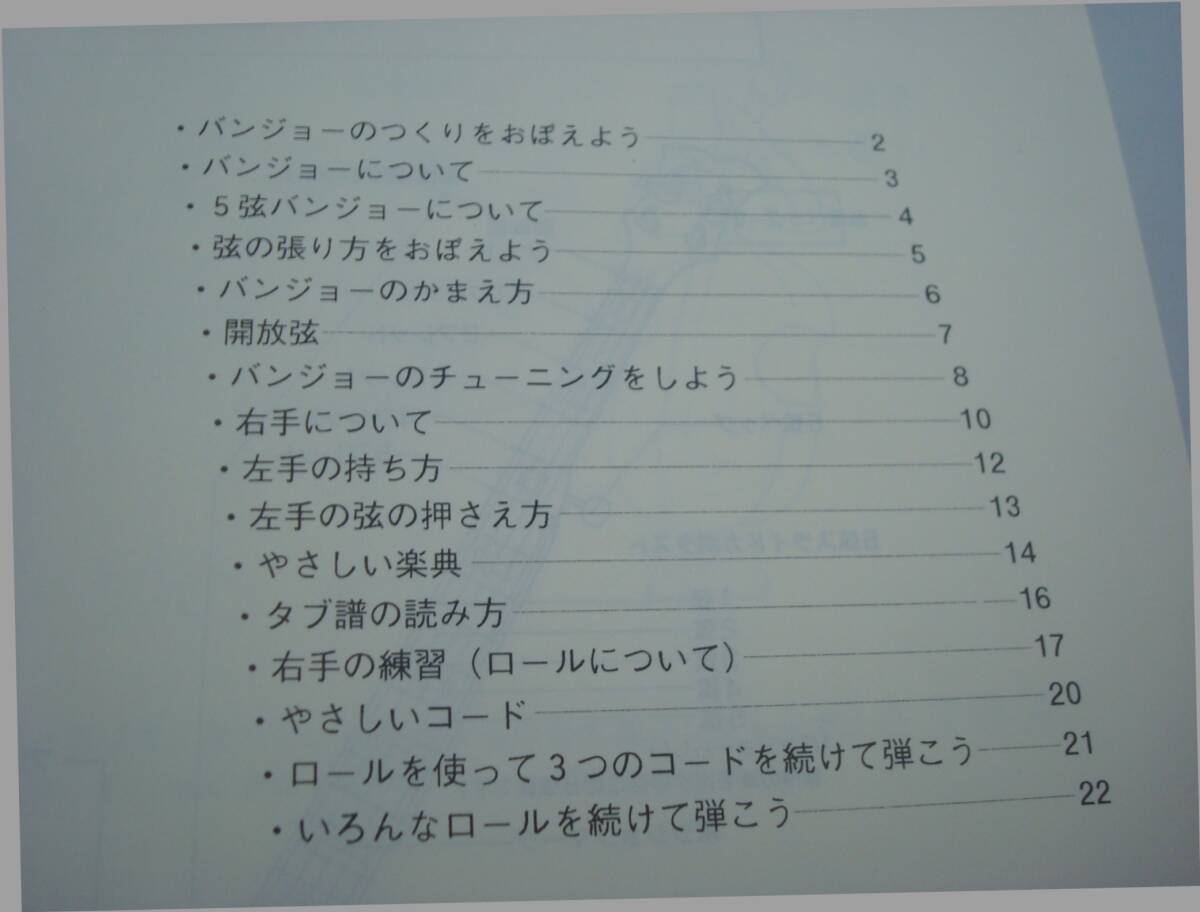 ・バンジョーのつくりをおぼえよう 2
・バンジョーについて 3
・5弦バンジョーについて 4
・弦の張り方をおぼえよう 5
・バンジョーのかまえ方 6
・開放弦 7
・バンジョーのチューニングをしよう 8
・右手について 10
・左手の持ち方 12
・左手の弦の押さえ方 13
・やさしい楽典 14
・タブ譜の読み方 16
・右手の練習（ロールについて） 17
・やさしいコード 20
・ロールを使って3つのコードを続けて弾こう 21
・いろんなロールを続けて弾こう 22